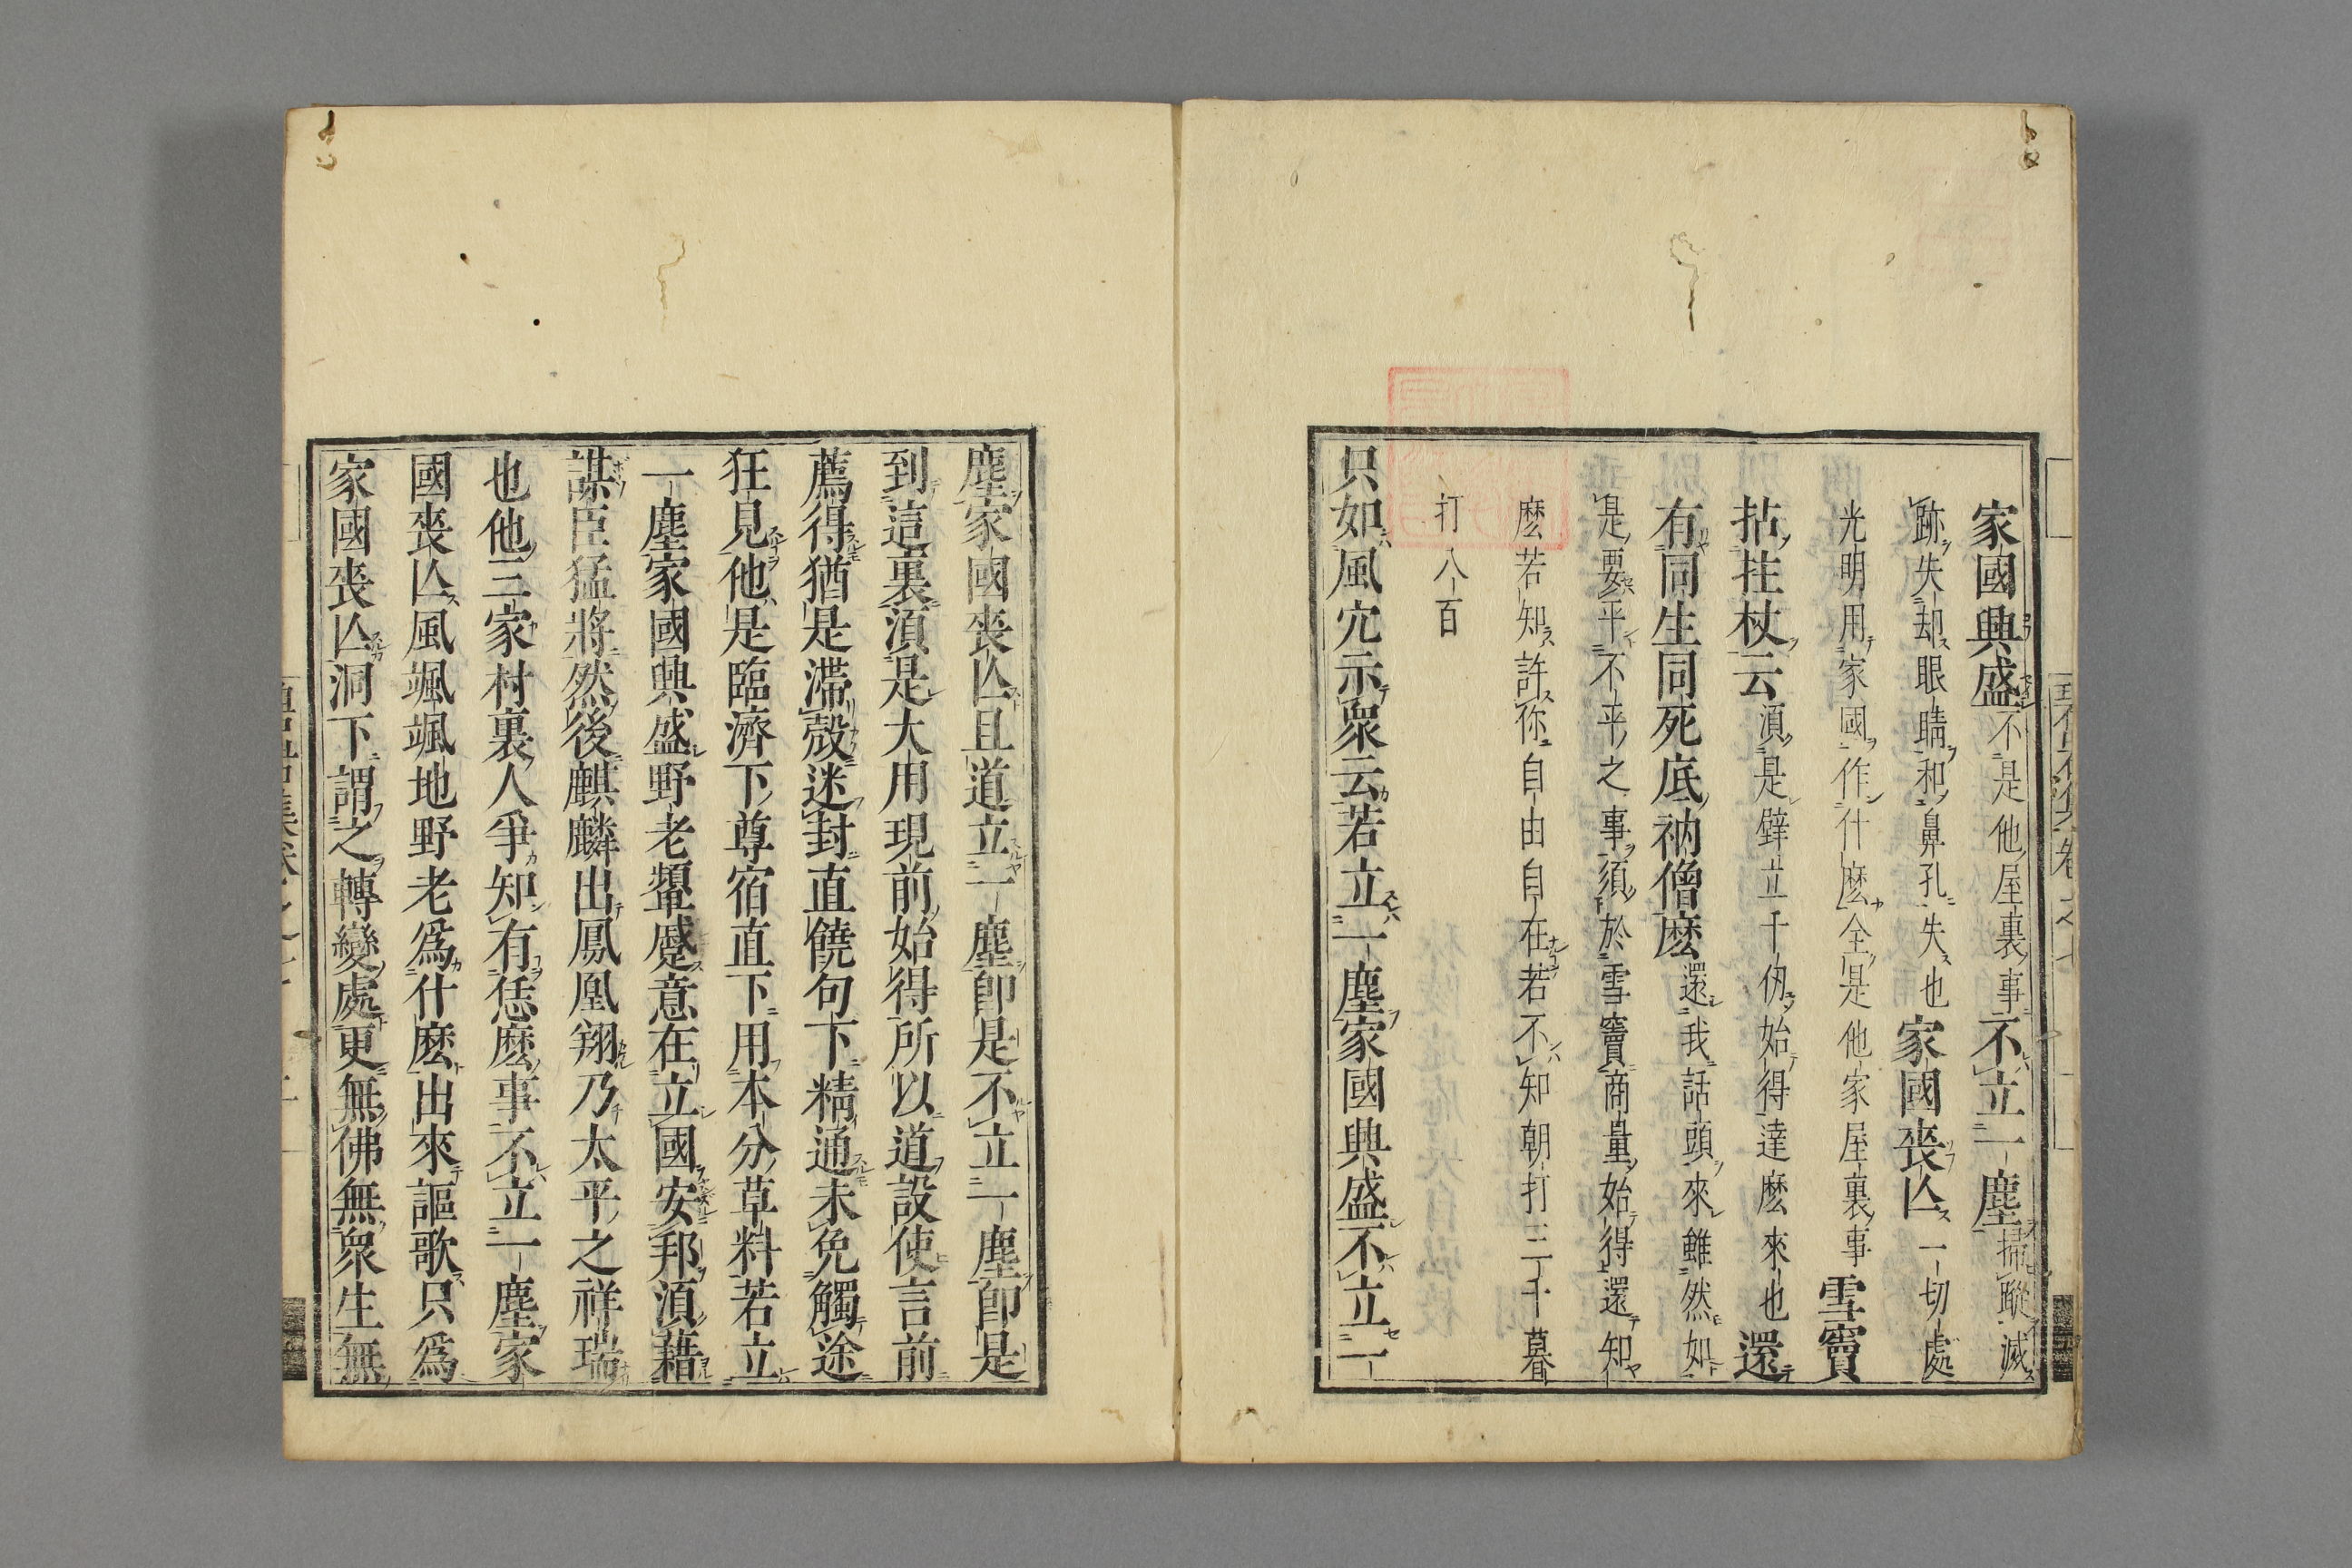 家國興盛不是他屋裏事不立一塵掃蹤滅
跡失却眼睛和鼻孔失也家國喪亾一切處
光明用家國作什麽全是他家屋裏事雪竇
拈拄杖云須是壁立千仭始得達麽來也還
有同生同死底衲僧麽還我話頭來雖然如
是要平不平之事須於雪竇商量始得還知
麽若知許你自由自在若不知朝打三千暮
打八百
只如風穴示衆云若立一塵家國興盛不立一
塵家國喪亾且道立一塵即是不立一塵即是
到這裏須是大用現前始得所以道設使言前
薦得猶是滯殼迷封直饒句下精通未免觸途
狂見他是臨濟下尊宿直下用本分草料若立
一塵家國興盛野老顰蹙意在立國安邦須藉
謀臣猛將然後麒麟出鳳凰翔乃太平之祥瑞
也他三家村裏人爭知有恁麽事不立一塵家
國喪亾風颯颯地野老爲什麽出來謳歌只爲
家國喪亾洞下謂之轉變處更無佛無衆生無